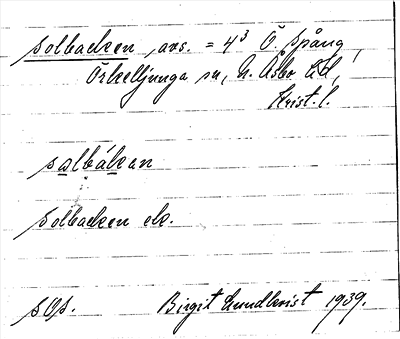 Solbacken, avs. = 4³ Ö. Spång,
Örkelljunga sn, N. Åsbo hd,
Krist. l.
salbákan
Solbacken ek.
SOS.
Birgit Lundkvist 1939.